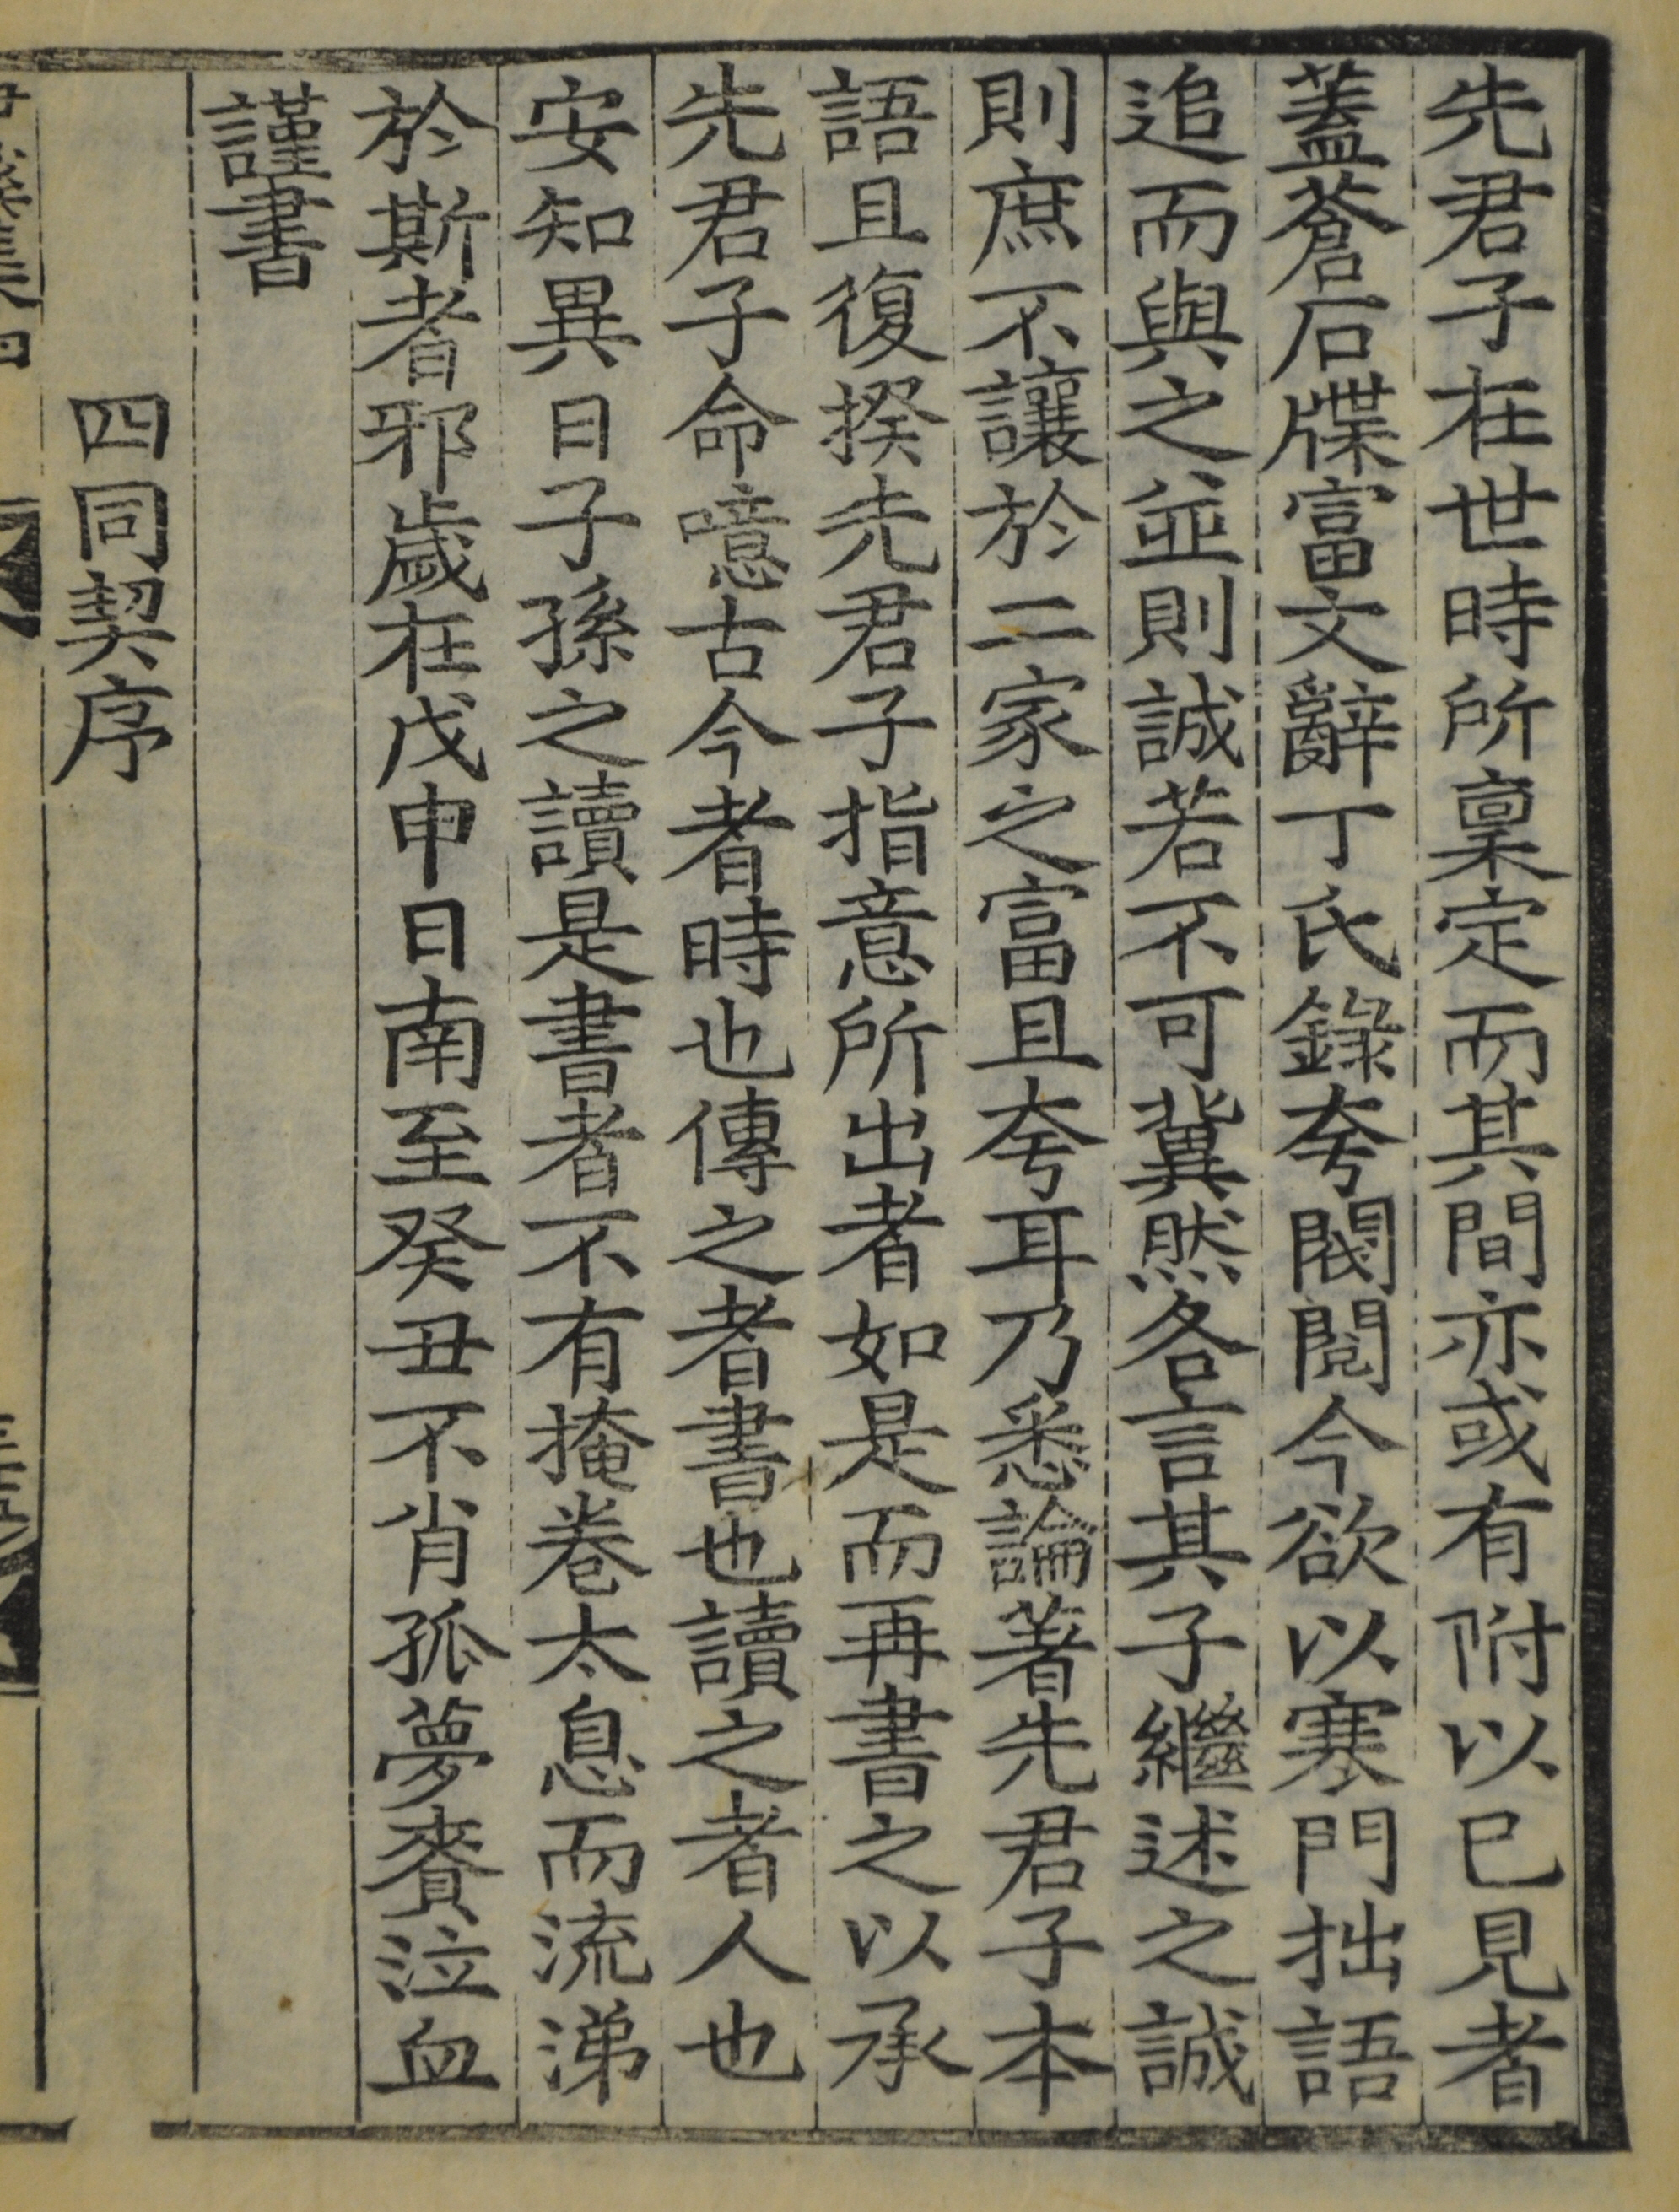 先君子在世時所稟定而其間亦或有附以已見者
蓋蒼石牒富文辭丁氏錄夸閥閱今欲以寒門拙語
追而與之並則誠若不可冀然各言其子繼述之誠
則庶不讓於二家之富且夸耳乃悉論著先君子本
語且復揆先君子指意所出者如是而再書之以承
先君子命噫古今者時也傳之者書也讀之者人也
安知異日子孫之讀是書者不有掩卷太息而流涕
於斯者邪歲在戊申日南至癸丑不肖孤夢賚泣血
謹書
四同契序